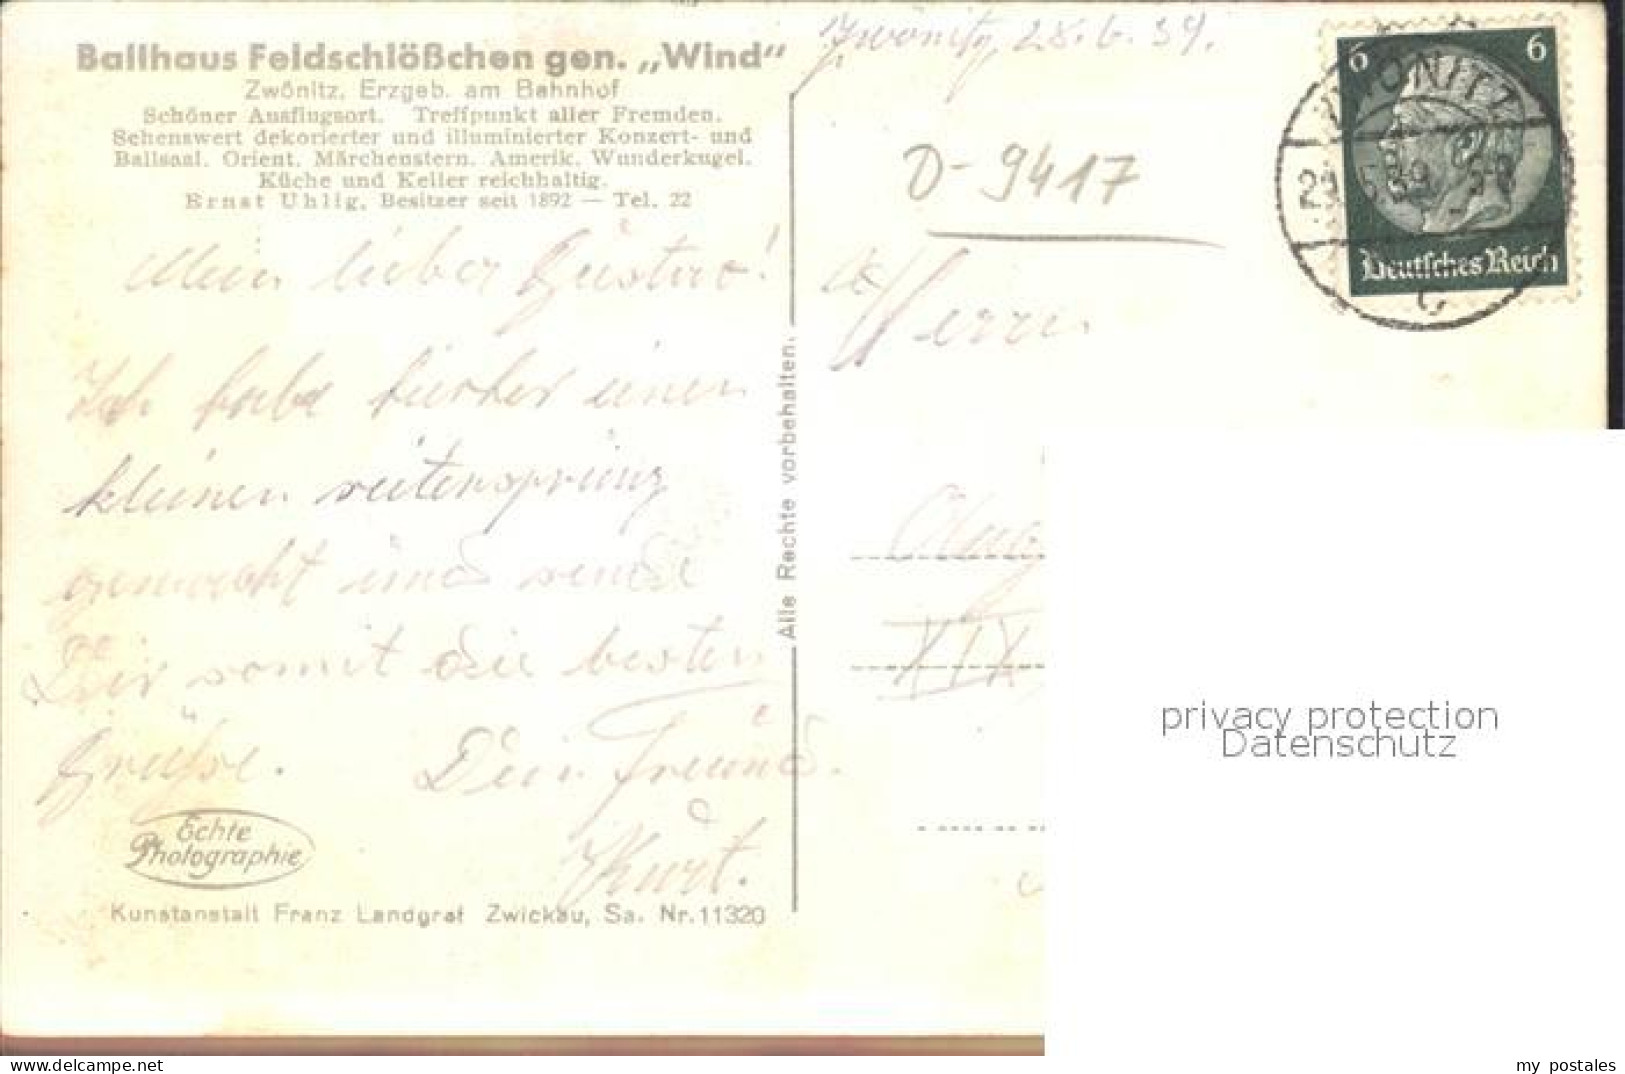 Ballhaus Feldschlößchen gen. „Wind“
Zwönitz, Erzgeb. am Bahnhof
Schöner Ausflugsort. Treffpunkt aller Fremden.
Sehenswert dekorierter und illuminierter Konzert- und
Ballsaal. Orient. Märchenstern. Amerik. Wunderkugel.
Küche und Keller reichhaltig.
Ernst Uhlig, Besitzer seit 1892 — Tel. 22
Mein lieber Gustav!
Ich habe hierher einen
kleinen seitensprung
gemacht und sende
Dir somit die besten
Grüße. Dein Freund.
Kurt.
Echte
Photographie
Kunstanstalt Franz Landgraf Zwickau, Sa. Nr. 11320
Alle Rechte vorbehalten.
Zwönitz, 28. 6. 39.
D-9417
Herrn
XIX
6 6
Deutsches Reich
ZWÖNITZ
c
privacy protection
Datenschutz
www.ansichtskartenversand.com
my postales